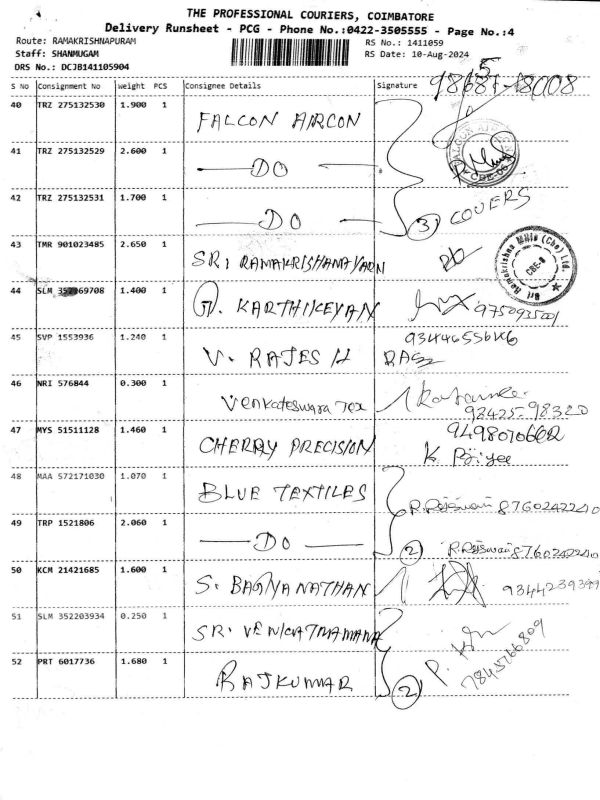 THE PROFESSIONAL COURIERS, COIMBATORE
Delivery Runsheet - PCG - Phone No.:0422-3505555 - Page No.:4
Route: RAMAKRISHNAPURAM RS No.: 1411059
Staff: SHANMUGAM RS Date: 10-Aug-2024
DRS No.: DCJB141105904
S No Consignment No Weight PCS Consignee Details Signature
40 TRZ 275132530 1.900 1 FALCON AIRCON
41 TRZ 275132529 2.600 1 — DO —
42 TRZ 275132531 1.700 1 — DO — 3 COVERS
43 TMR 901023485 2.650 1 SRI RAMAKRISHANAYARN
Sri Ramakrishna Mills (Cbe) Ltd. CBE-6
44 SLM 1.400 1 G. KARTHIKEYAN 9750935001
45 SVP 1553936 1.240 1 V. RAJESH
46 NRI 576844 0.300 1 Venkateswara Tex 92425-98320
47 MYS 51511128 1.460 1 CHERRY PRECISION
48 MAA 572171030 1.070 1 BLUE TEXTILES 8760242210
49 TRP 1521806 2.060 1 — DO — 2 8760242210
50 KCM 21421685 1.600 1 S. BAGYANATHAN
51 SLM 352203934 0.250 1
52 PRT 6017736 1.680 1 RAJKUMAR 2 7845766809